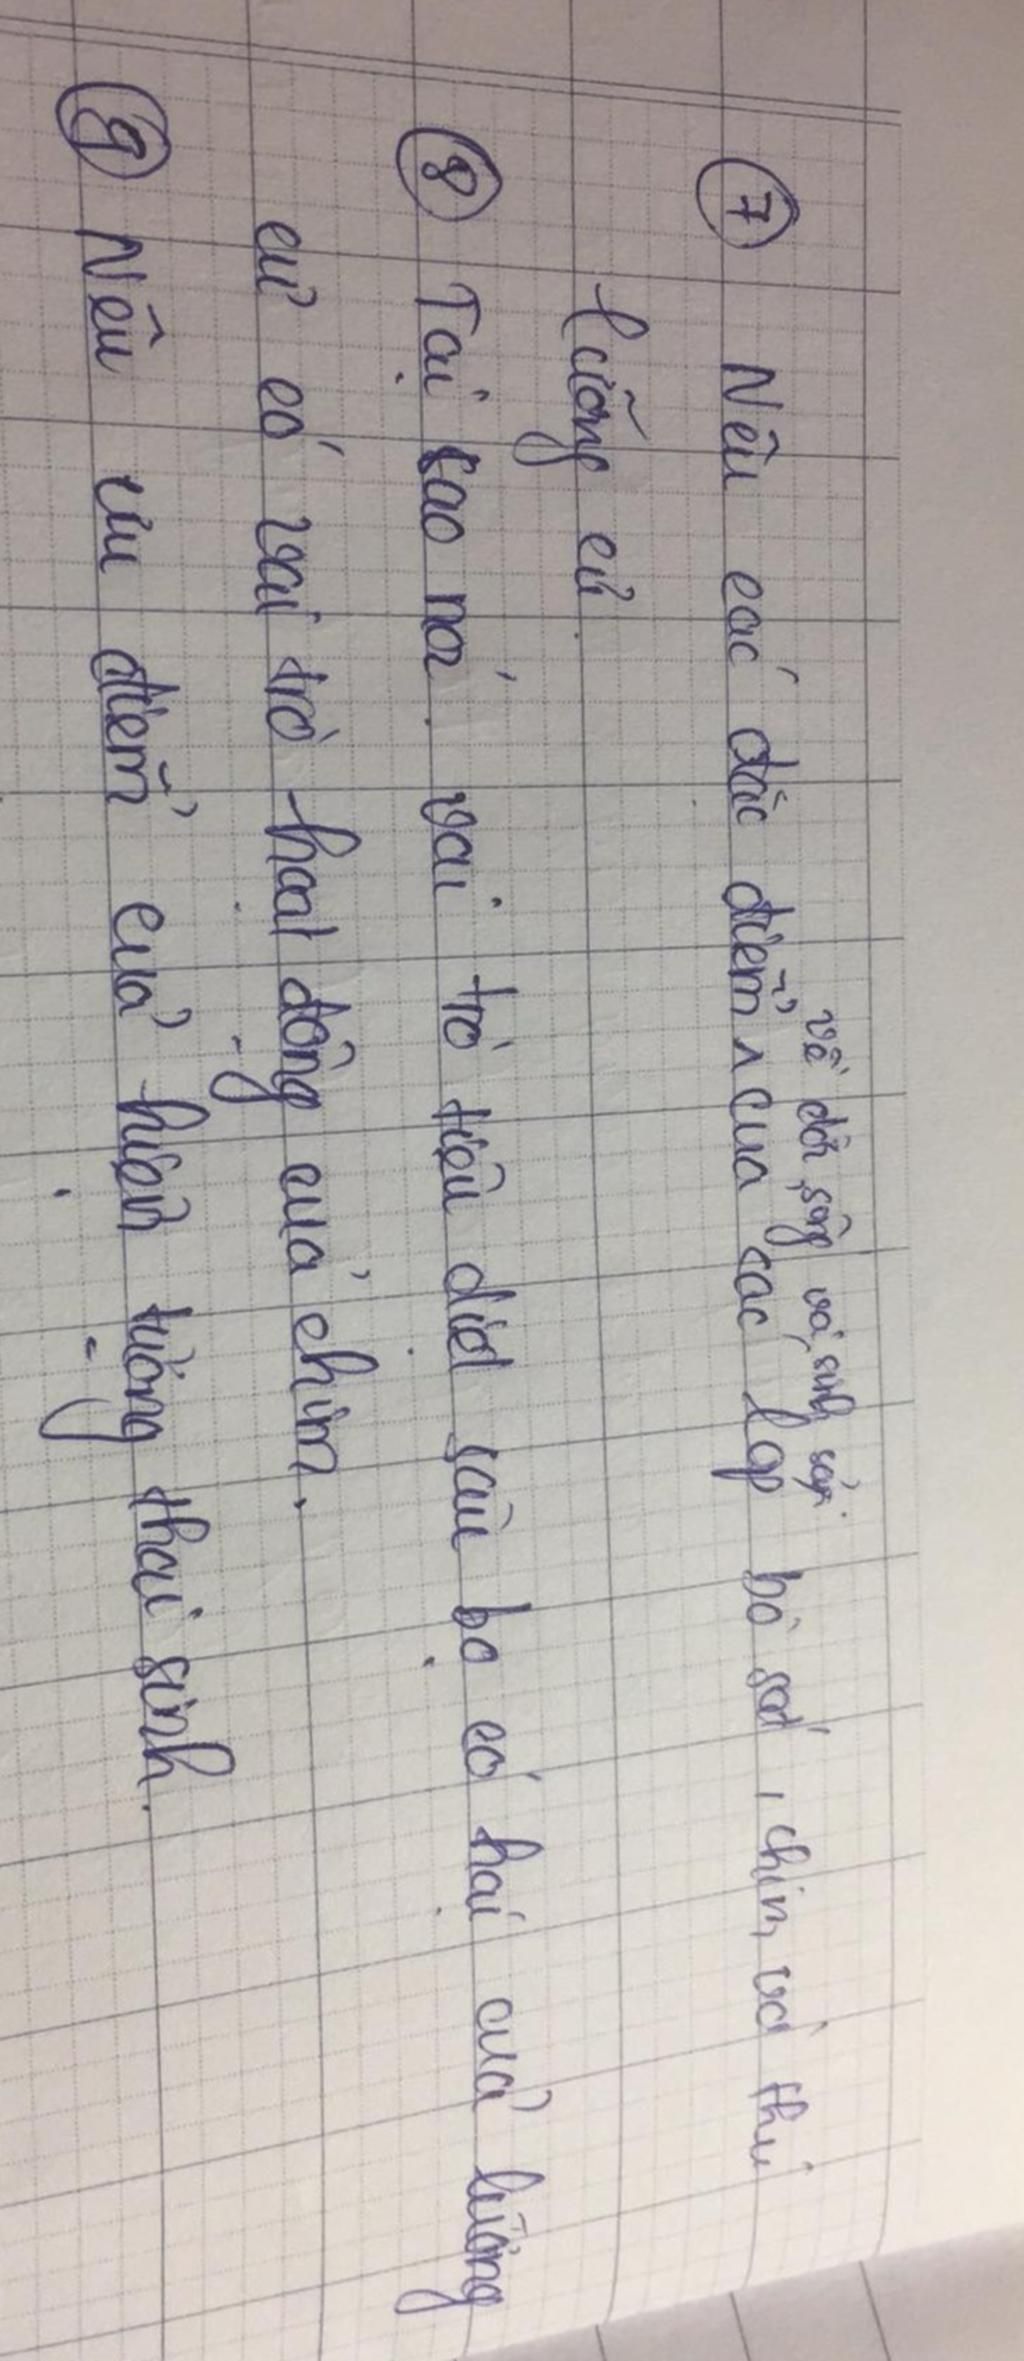 về đời sống và sinh sản
⑦ Nêu các đặc điểm ∧ của các lớp bò sát, chim và thú
lưỡng cư.
⑧ Tại sao nói vai trò tiêu diệt sâu bọ có hại của lưỡng
cư có vai trò hoạt động của chim.
⑨ Nêu ưu điểm của hiện tượng thai sinh.